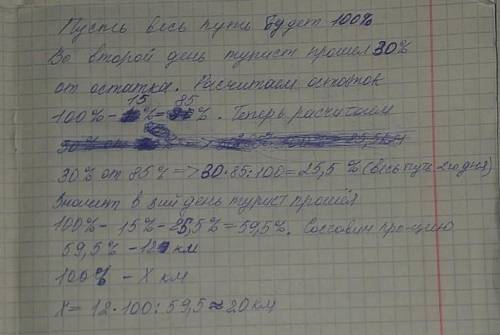 Пусть весь путь будет 100%
Во второй день турист прошел 30%
от остатка. Расчитаем остаток
100% - 15% = 85%. Теперь расчитаем
30% от 85% => 30·85:100 = 25,5 % (весь путь 2го дня)
Значит в 3ий день турист прошёл
100% - 15% - 25,5% = 59,5%. Составим про-цию
59,5% - 12 км
100% - X км
X = 12·100:59,5 ≈ 20 км